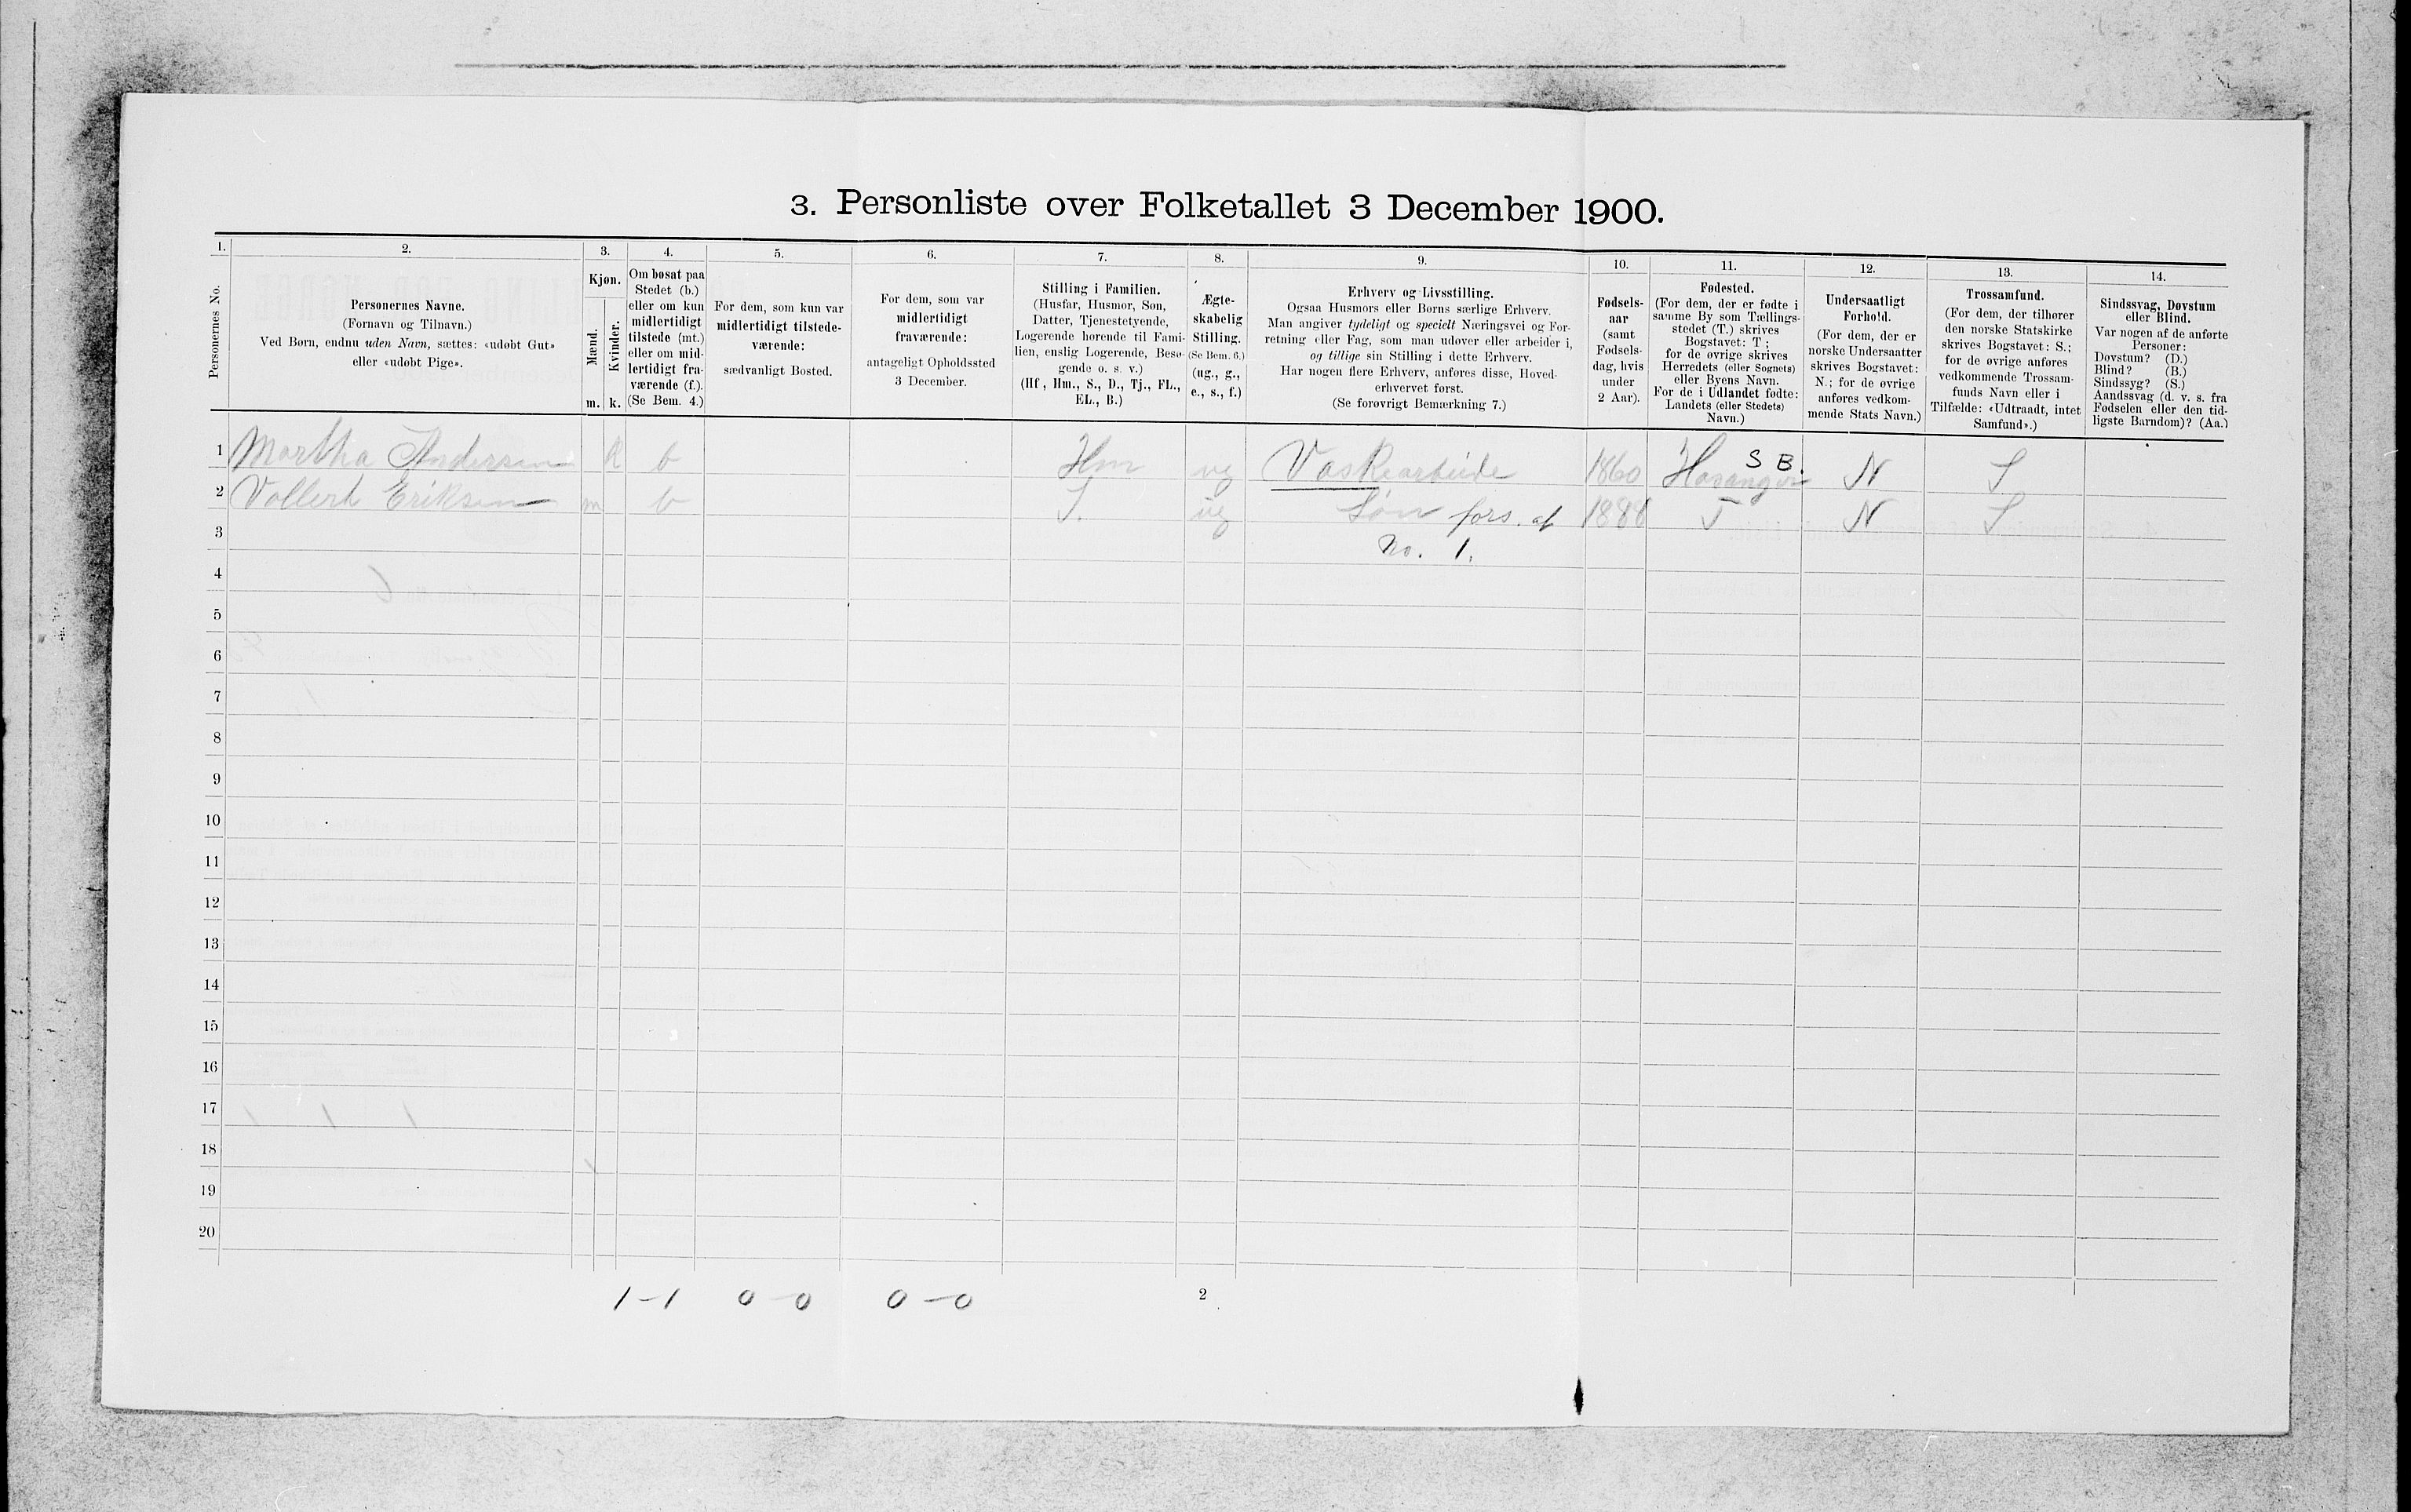 3. Personliste over Folketallet 3 December 1900.
1. 2. 3. 4. 5. 6. 7. 8. 9. 10. 11. 12. 13. 14.
Personernes No.
Personernes Navne.
(Fornavn og Tilnavn.)
Ved Børn, endnu uden Navn, sættes: «udøbt Gut»
eller «udøbt Pige».
Kjøn.
Mænd.
Kvinder.
m. k.
Om bosat paa
Stedet (b.)
eller om kun
midlertidigt
tilstede (mt.)
eller om mid-
lertidigt fra-
værende (f.).
(Se Bem. 4.)
For dem, som kun var
midlertidigt tilstede-
værende:
sædvanligt Bosted.
For dem, som var
midlertidigt
fraværende:
antageligt Opholdssted
3 December.
Stilling i Familien.
(Husfar, Husmor, Søn,
Datter, Tjenestetyende,
Logerende hørende til Fami-
lien, enslig Logerende, Besø-
gende o. s. v.)
(Hf, Hm., S., D., Tj., FL.,
EL., B.)
Ægte-
skabelig
Stilling.
(Se Bem. 6.)
(ug., g.,
e., s., f.)
Erhverv og Livsstilling.
Ogsaa Husmors eller Børns særlige Erhverv.
Man angiver tydeligt og specielt Næringsvei og For-
retning eller Fag, som man udøver eller arbeider i,
og tillige sin Stilling i dette Erhverv.
Har nogen flere Erhverv, anføres disse, Hoved-
erhvervet først.
(Se forøvrigt Bemærkning 7.)
Fødsels-
aar
(samt
Fødsels-
dag, hvis
under
2 Aar).
Fødested.
(For dem, der er fødte i
samme By som Tællings-
stedet (T.) skrives
Bogstavet: T;
for de øvrige skrives
Herredets (eller Sognets)
eller Byens Navn.
For de i Udlandet fødte:
Landets (eller Stedets)
Navn.)
Undersaatligt
Forhold.
(For dem, der er
norske Undersaatter
skrives Bogstavet:
N.; for de øvrige
anføres vedkom-
mende Stats Navn.)
Trossamfund.
(For dem, der tilhører
den norske Statskirke
skrives Bogstavet: S.;
for de øvrige anføres
vedkommende Trossam-
funds Navn eller i
Tilfælde: «Udtraadt, intet
Samfund».)
Sindssvag, Døvstum
eller Blind.
Var nogen af de anførte
Personer:
Døvstum? (D.)
Blind? (B.)
Sindssyg? (S.)
Aandssvag (d. v. s. fra
Fødselen eller den tid-
ligste Barndom)? (Aa.)
1 Martha Andersen k b Hm ug Vaskearbeide 1860 Hosanger S B. N S
2 Vollert Eriksen m b S. ug Søn fors. af 1888 T N S
3 No. 1.
4
5
6
7
8
9
10
11
12
13
14
15
16
17
18
19
20
1-1 0-0 0-0 2